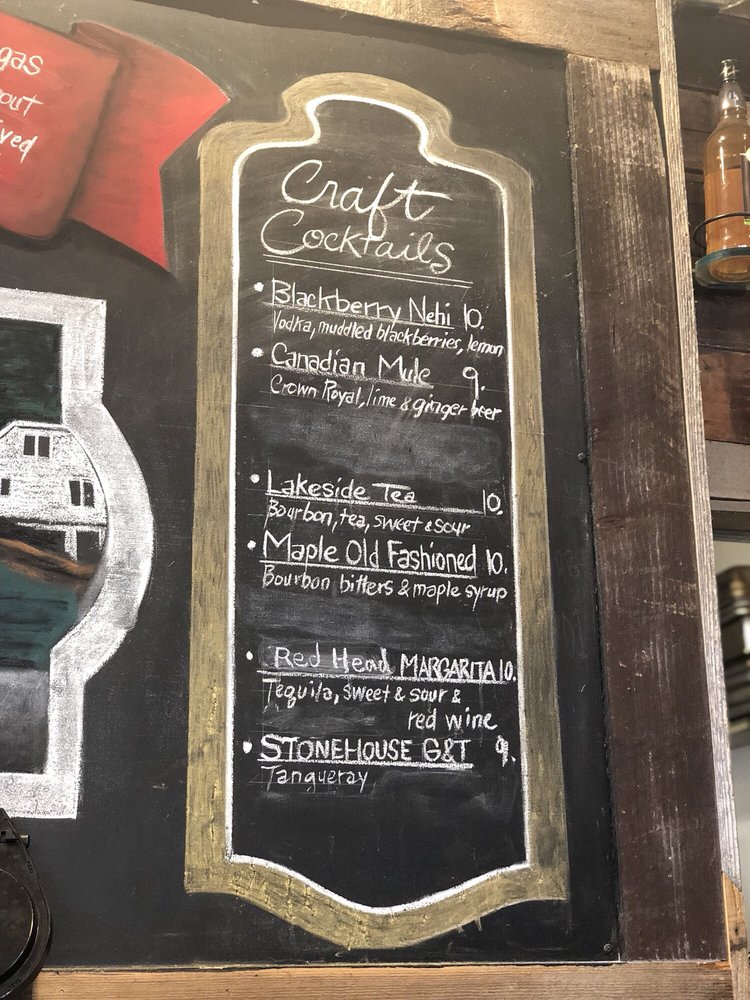 gas
out
ved
Craft
Cocktails
• Blackberry Nehi 10.
Vodka, muddled blackberries, lemon
• Canadian Mule 9.
Crown Royal, lime & ginger beer
• Lakeside Tea 10.
Bourbon, tea, sweet & sour
• Maple Old Fashioned 10.
Bourbon bitters & maple syrup
• Red Head MARGARITA 10.
Tequila, sweet & sour &
red wine
• STONEHOUSE G&T 9.
Tangueray